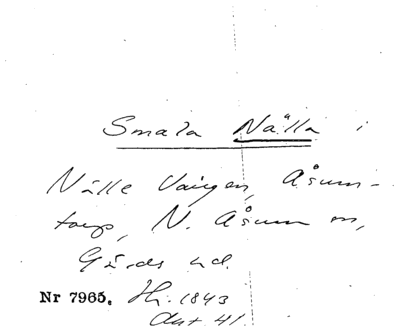 Smala Nälla i
Nälle Vången, Åsum-
torp, N. Åsum sn,
Gärds hd.
Nr 7965. Hi. 1843
Akt 41